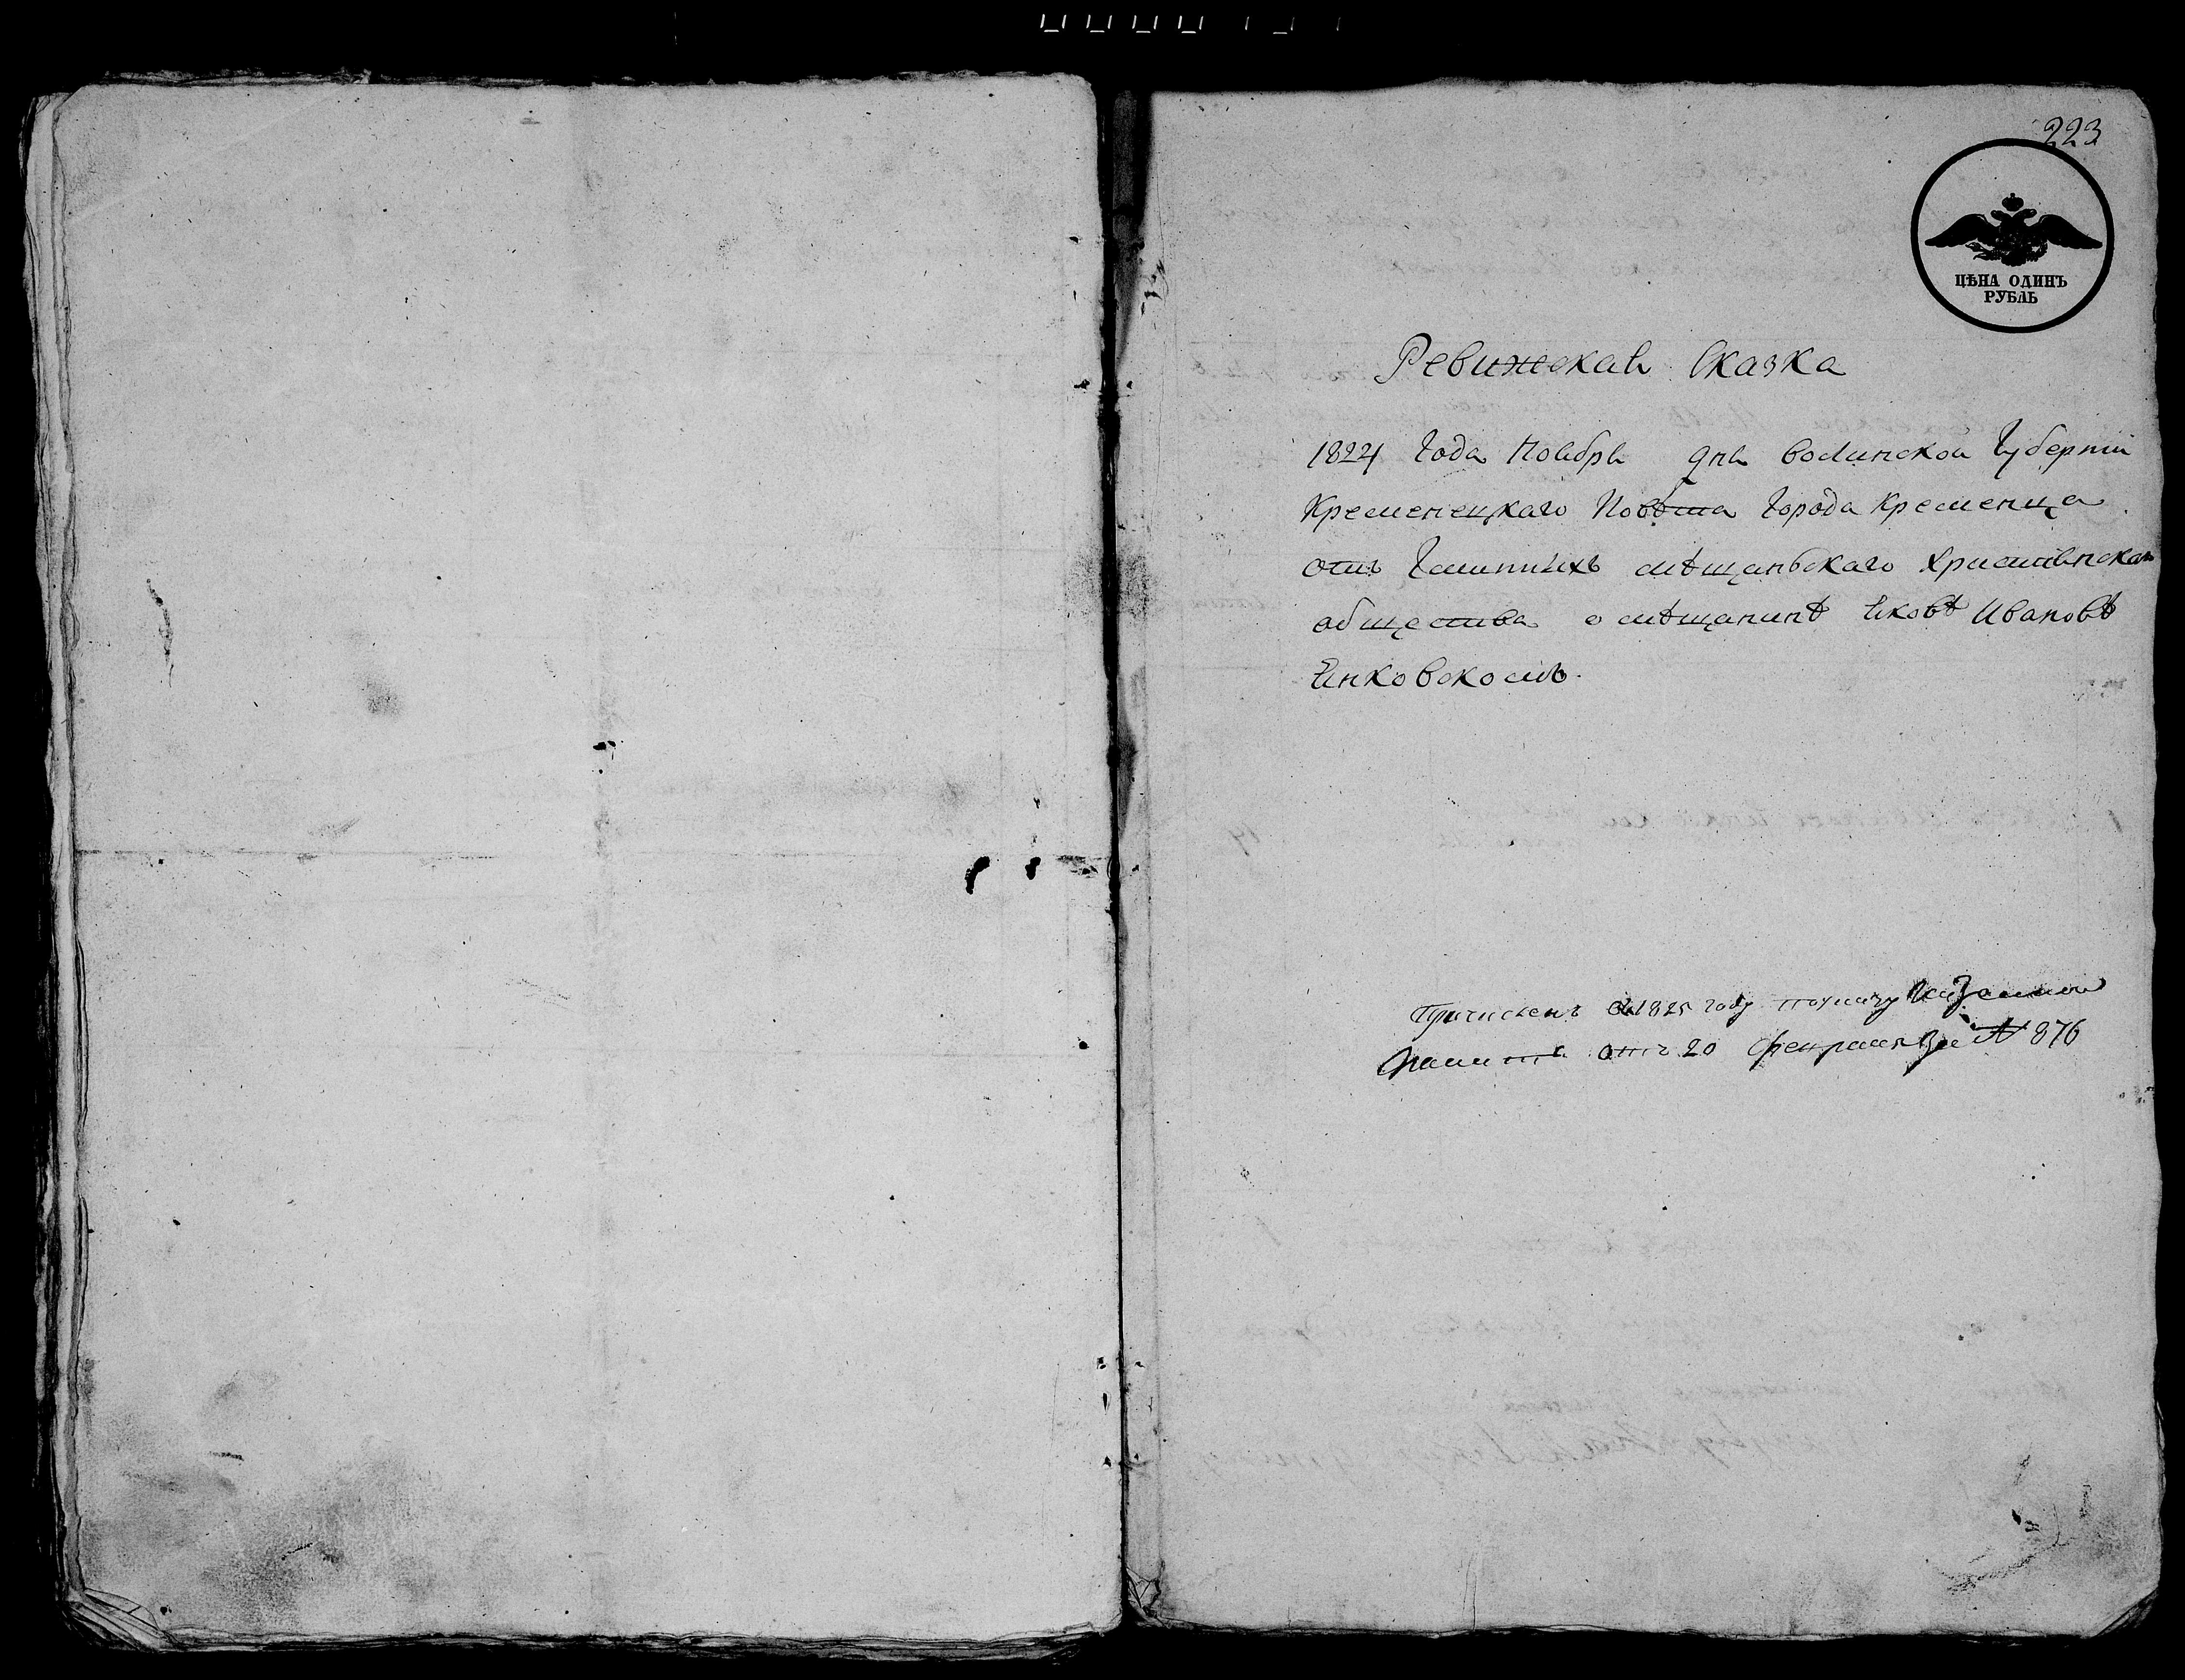 223
ЦѢНА ОДИНЪ
РУБЛЬ
Ревижская Сказка
1824 Года Ноября дня Волинской Губернiи
Кременецкаго Повѣта Города Кременца
отъ мѣщаньского Христiянскаго
общества о мѣщанинѣ Яковѣ Ивановѣ
Янковскомъ.
Причисленъ 1825 году по указу
Палиты отъ 20 февраля За № 876